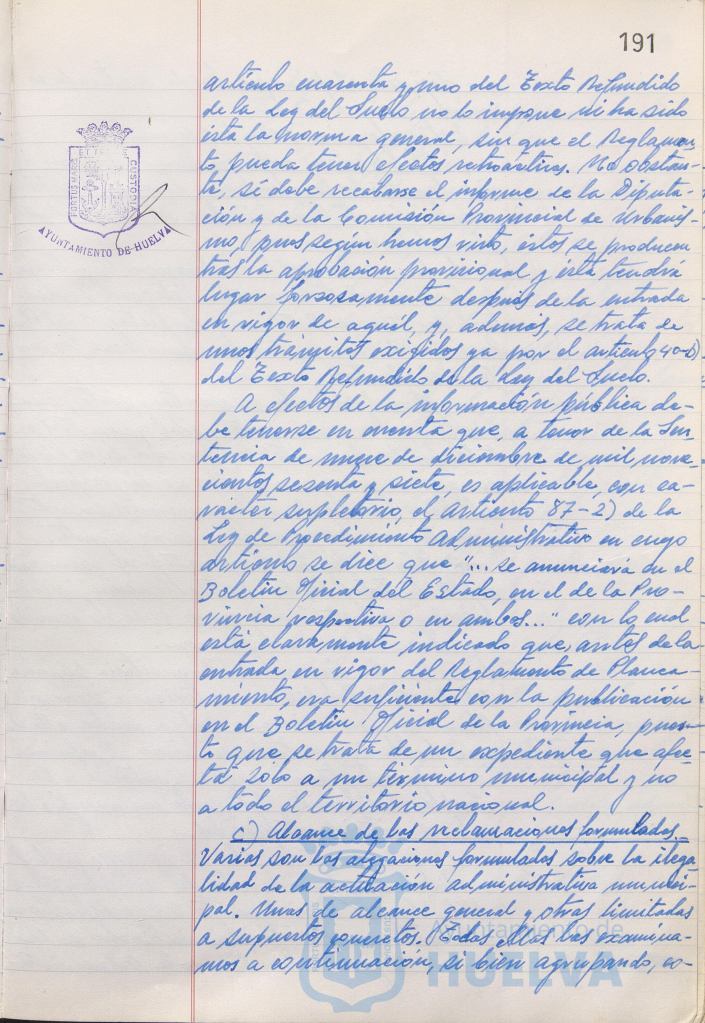 191
artículo cuarenta y uno del Texto Refundido
de la Ley del Suelo no lo impone ni ha sido
ésta la norma general, sin que el Reglamen-
to pueda tener efectos retroactivos. No obstan-
te, sí debe recabarse el informe de la Diputa-
ción y de la Comisión Provincial de Urbanis-
mo, pues según hemos visto, éstos se producen
tras la aprobación provisional y ésta tendrá
lugar forzosamente después de la entrada
en vigor de aquél, y, además, se trata de
unos trámites exigidos ya por el artículo 40-b)
del Texto Refundido de la Ley del Suelo.
A efectos de la información pública de-
be tenerse en cuenta que, a tenor de la Sen-
tencia de nueve de diciembre de mil nove-
cientos sesenta y siete, es aplicable, con ca-
rácter supletorio, el artículo 87-2) de la
Ley de Procedimiento Administrativo en cuyo
artículo se dice que "... se anunciará en el
Boletín Oficial del Estado, en el de la Pro-
vincia respectiva o en ambos..." con lo cual
está claramente indicado que, antes de la
entrada en vigor del Reglamento de Planea-
miento, era suficiente con la publicación
en el Boletín Oficial de la Provincia, pues-
to que se trata de un expediente que afec-
ta solo a un término municipal y no
a todo el territorio nacional.
c) Alcance de las reclamaciones formuladas.-
Varias son las alegaciones formuladas sobre la ilega-
lidad de la actuación administrativa munici-
pal. Unas de alcance general y otras limitadas
a supuestos concretos. Todas ellas las examina-
mos a continuación, si bien agrupando, co-
PORTUS MARIS
ET TERRAE
CUSTODIA
AYUNTAMIENTO DE HUELVA
Ayuntamiento de
HUELVA